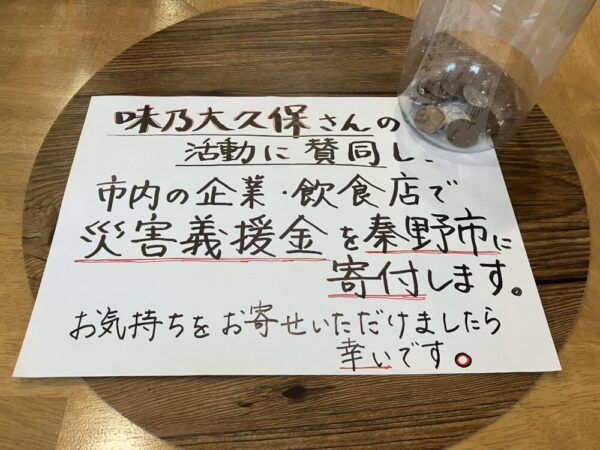 味乃大久保さんの
活動に賛同し、
市内の企業・飲食店で
災害義援金を秦野市に
寄付します。
お気持ちをお寄せいただけましたら
幸いです。